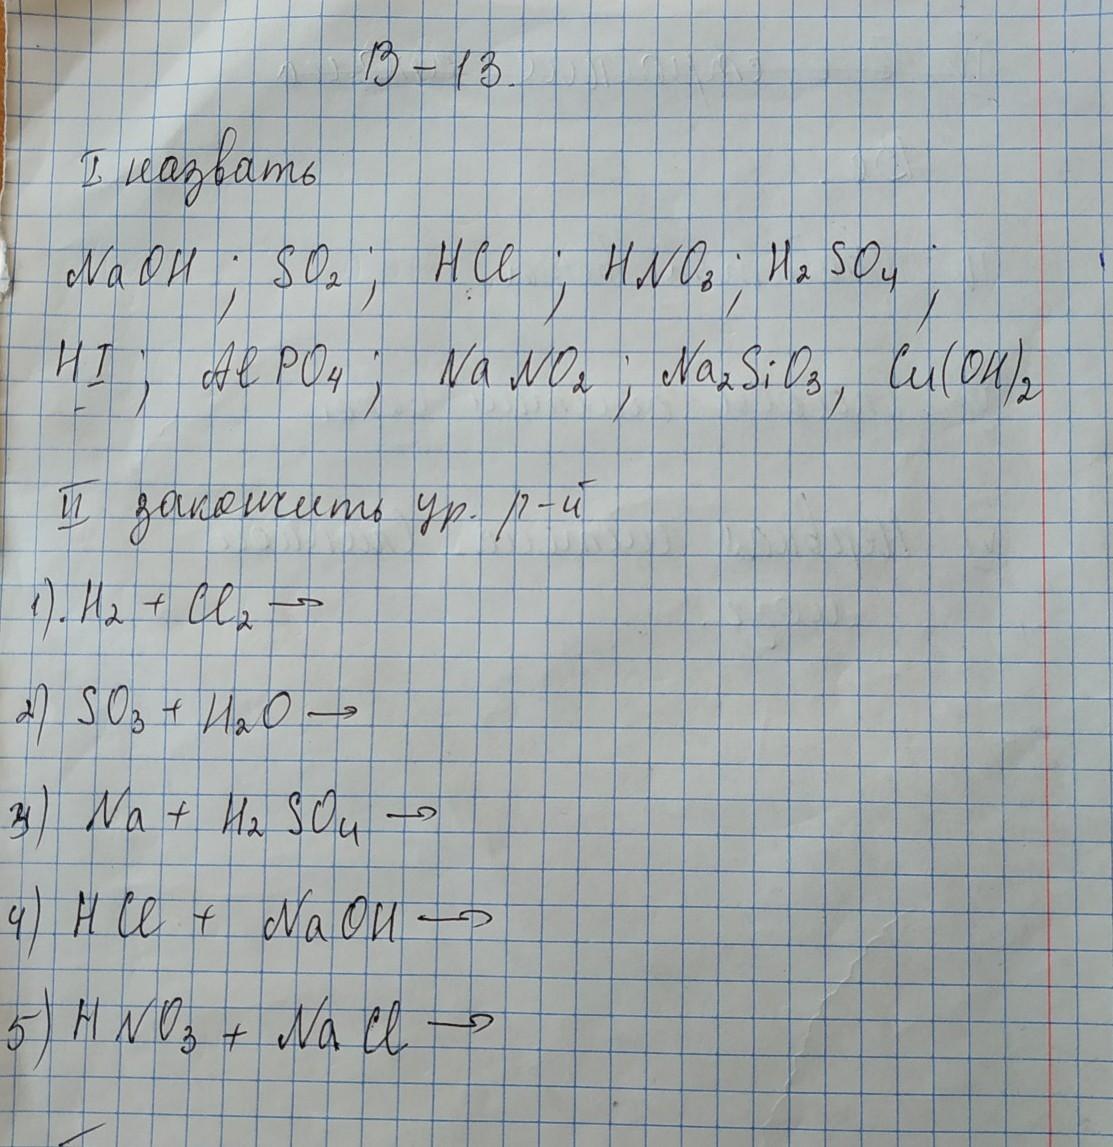 В – 13.
I назвать
NaOH ; SO₂ ; HCl ; HNO₃ ; H₂SO₄ ;
HI ; AlPO₄ ; NaNO₂ ; Na₂SiO₃, Cu(OH)₂
II закончить ур. р-й
1). H₂ + Cl₂ →
2) SO₃ + H₂O →
3) Na + H₂SO₄ →
4) HCl + NaOH →
5) HNO₃ + NaCl →